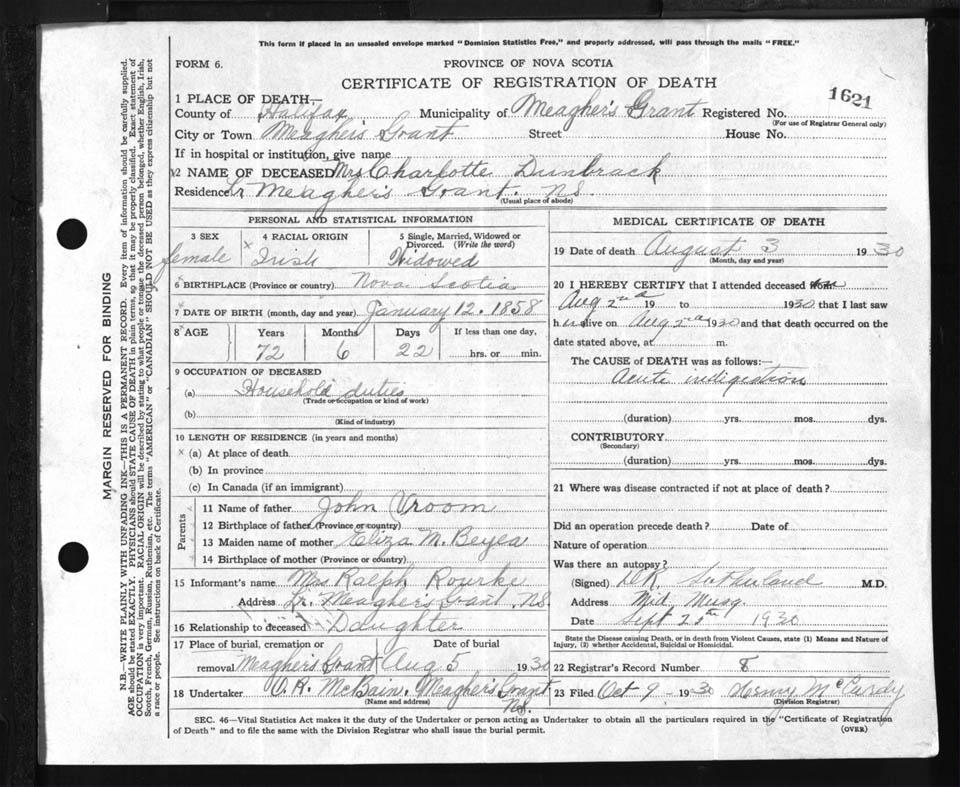 This form if placed in an unsealed envelope marked "Dominion Statistics Free," and properly addressed, will pass through the mails "FREE."
FORM 6.
PROVINCE OF NOVA SCOTIA
CERTIFICATE OF REGISTRATION OF DEATH
1621
1 PLACE OF DEATH—
County of Halifax, Municipality of Meagher's Grant Registered No.
(For use of Registrar General only)
City or Town Meaghers Grant Street House No.
If in hospital or institution, give name
2 NAME OF DECEASED Mrs Charlotte Dunbrack
Residence Lr Meagher's Grant. N.S.
(Usual place of abode)
PERSONAL AND STATISTICAL INFORMATION
3 SEX
female
4 RACIAL ORIGIN
x Irish
5 Single, Married, Widowed or Divorced. (Write the word)
Widowed
6 BIRTHPLACE (Province or country) Nova Scotia
7 DATE OF BIRTH (month, day and year) January 12. 1858
8 AGE Years Months Days If less than one day,
72 6 22 hrs. or min.
9 OCCUPATION OF DECEASED
(a) Household duties
(Trade or occupation or kind of work)
(b)
(Kind of industry)
10 LENGTH OF RESIDENCE (in years and months)
x (a) At place of death
(b) In province
(c) In Canada (if an immigrant)
Parents
11 Name of father John Vroom
12 Birthplace of father (Province or country)
13 Maiden name of mother Eliza M. Beyea
14 Birthplace of mother (Province or country)
15 Informant's name Mrs Ralph Rourke
Address Lr. Meagher's Grant N.S.
16 Relationship to deceased Daughter
17 Place of burial, cremation or Date of burial
removal Meagher's Grant Aug 5 1930
18 Undertaker O. R. McBain. Meagher's Grant
(Name and address) N.S.
MEDICAL CERTIFICATE OF DEATH
19 Date of death August 3 1930
(Month, day and year)
20 I HEREBY CERTIFY that I attended deceased
Aug 2nd 19 to 1930 that I last saw
h er alive on Aug 2nd 1930 and that death occurred on the
date stated above, at m.
The CAUSE of DEATH was as follows:—
Acute indigestion
(duration) yrs. mos. dys.
CONTRIBUTORY
(Secondary)
(duration) yrs. mos. dys.
21 Where was disease contracted if not at place of death?
Did an operation precede death? Date of
Nature of operation
Was there an autopsy?
(Signed) Sutherland M.D.
Address Mid. Musq.
Date Sept 25th 1930
State the Disease causing Death, or in death from Violent Causes, state (1) Means and Nature of
Injury, (2) whether Accidental, Suicidal or Homicidal.
22 Registrar's Record Number 8
23 Filed Oct 9 1930 Henry McCurdy
(Division Registrar)
SEC. 46—Vital Statistics Act makes it the duty of the Undertaker or person acting as Undertaker to obtain all the particulars required in the "Certificate of Registration
of Death" and to file the same with the Division Registrar who shall issue the burial permit. (OVER)
MARGIN RESERVED FOR BINDING
N.B.—WRITE PLAINLY WITH UNFADING INK—THIS IS A PERMANENT RECORD. Every item of information should be carefully supplied.
AGE should be stated EXACTLY. PHYSICIANS should STATE CAUSE OF DEATH in plain terms, so that it may be properly classified. Exact statement of
OCCUPATION is very important. RACIAL ORIGIN will be described by stating to what people or tongue the deceased person belonged, whether English, Irish,
Scotch, French, German, Russian, Ruthenian, etc. The terms "AMERICAN" or "CANADIAN" SHOULD NOT BE USED as they express citizenship but not
a race or people. See instructions on back of Certificate.